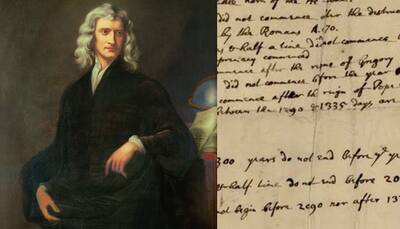 did not commence after the destruc
by the Romans A. 70.
s & half a line did not commence b
primacy commenced
commence after the reign of Gregory
did not commence before the year
commence after the reign of Pope
between the 1290 & 1335 days are
300 years do not end before ye ye
& half time do not end before 20
not begin before 2090 nor after 137